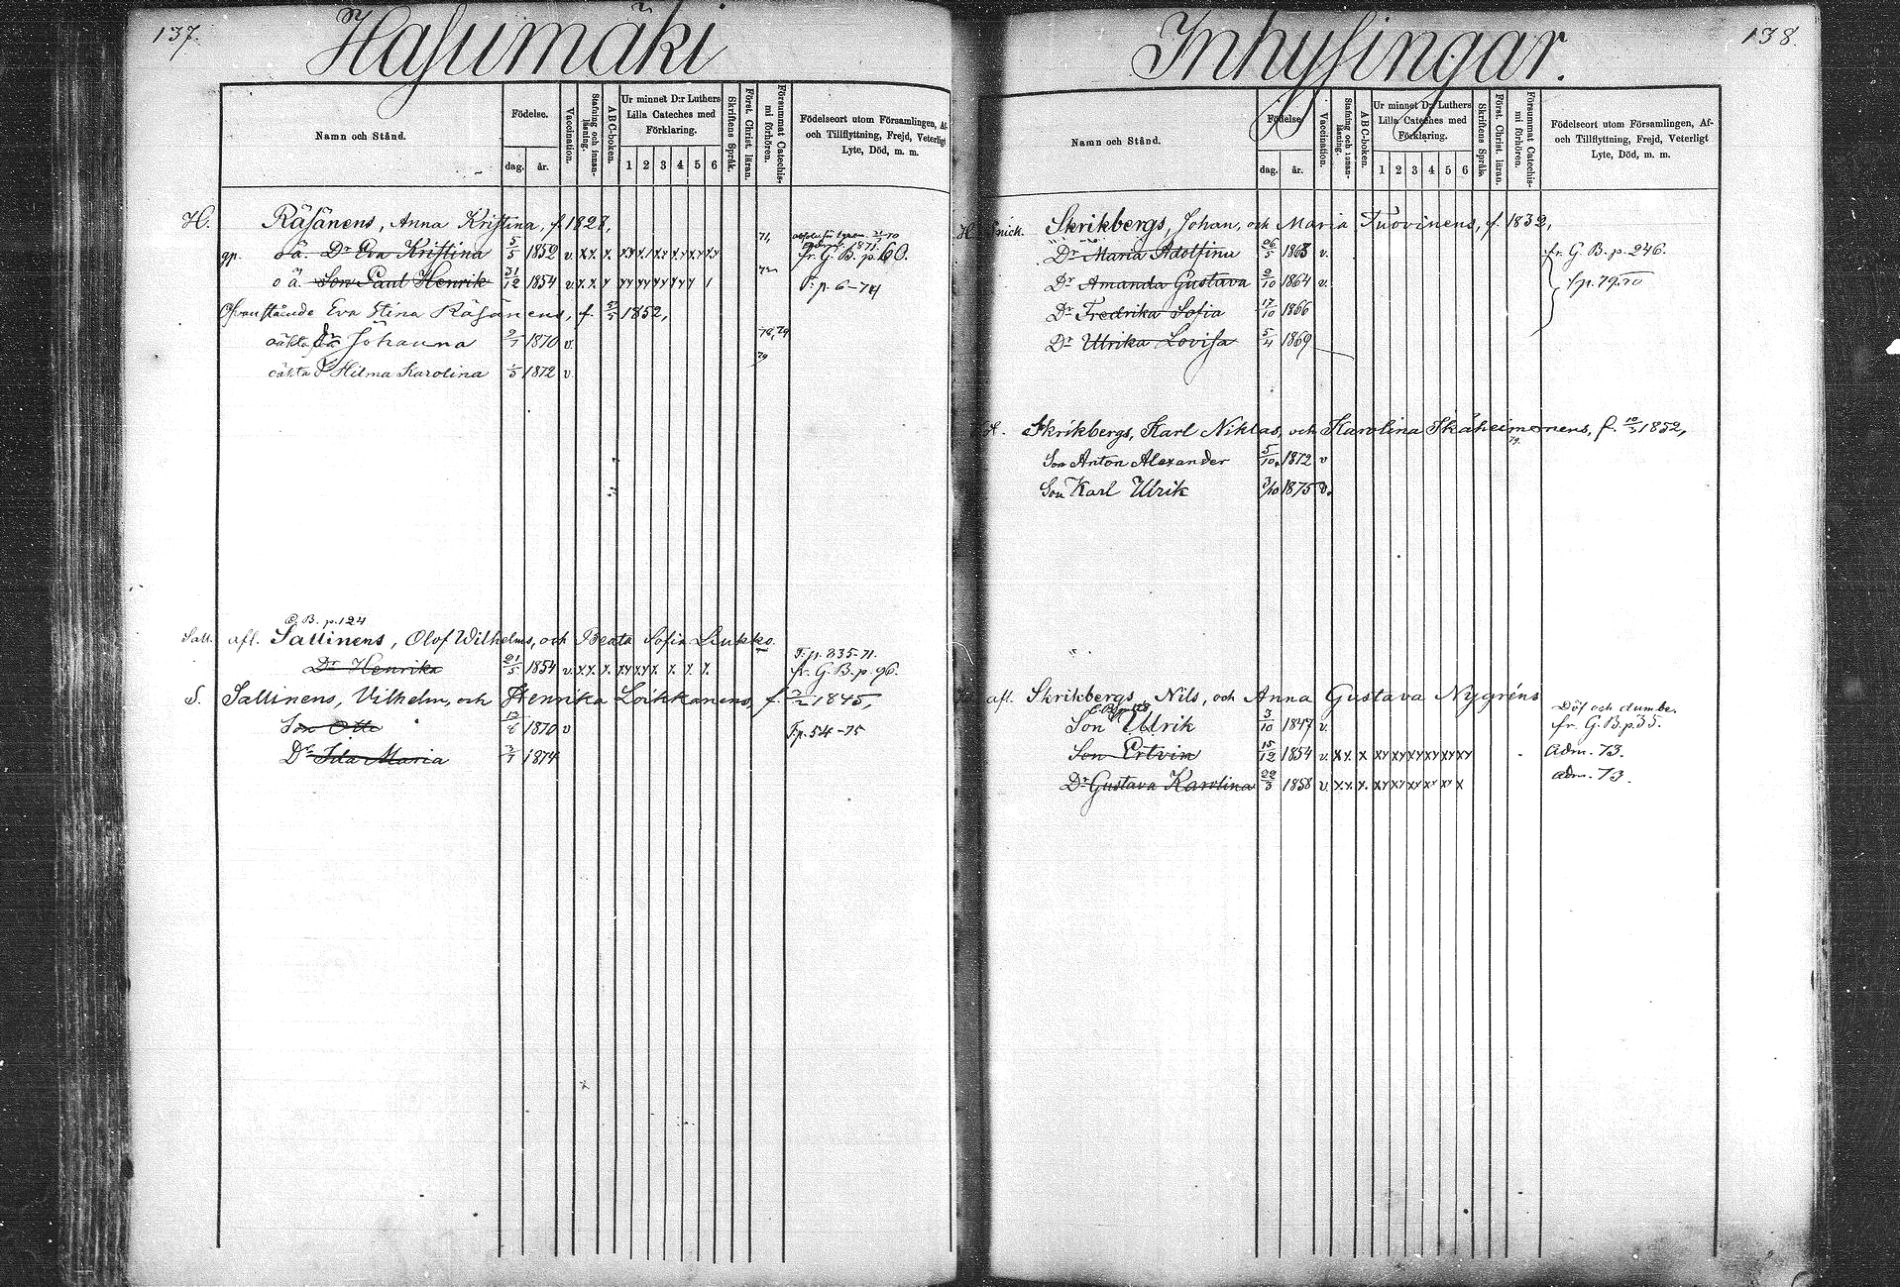 137.
Hasumäki
Namn och Stånd.
Födelse.
dag.
år.
Vaccination.
Stafning och innan-läsning.
ABC-boken.
Ur minnet D:r Luthers
Lilla Cateches med
Förklaring.
1 2 3 4 5 6
Skriftens Språk.
Först. Christ. läran.
Försummat Catechis-
mi förhören.
Födelseort utom Församlingen, Af-
och Tillflyttning, Frejd, Veterligt
Lyte, Död, m. m.
H. Räsänens, Anna Kristina, f. 1827,
gp. oä. Dr Eva Kristina 5/5 1852 v. fr. G. B. p. 60.
oä. Son Paul Henrik 31/12 1854 v. T. p. 6-74
Ofvanstående Eva Stina Räsänens, f. 5/5 1852,
oäkta dr Johanna 2/7 1870 v. 78, 79
oäkta d Hilma Karolina 1/5 1872 v. 79
C. B. p. 124
Sall. afl. Sallinens, Olof Wilhelms, och Beata Sofia Liukko
Dr Henrika 21/5 1854 v. T. p. 235-71.
fr. G. B. p. 96.
S. Sallinens, Vilhelm, och Henrika Loikkanens, f. 2/2 1845,
Son Otto 13/6 1870 v T. p. 54-75
Dr Ida Maria 3/7 1874
Inhysingar.
138.
Namn och Stånd.
Födelse.
dag.
år.
Vaccination.
Stafning och innan-läsning.
ABC-boken.
Ur minnet D:r Luthers
Lilla Cateches med
Förklaring.
1 2 3 4 5 6
Skriftens Språk.
Först. Christ. läran.
Försummat Catechis-
mi förhören.
Födelseort utom Församlingen, Af-
och Tillflyttning, Frejd, Veterligt
Lyte, Död, m. m.
H. Snick. Skrikbergs, Johan, och Maria Tuovinens, f. 1832,
Dr Maria Adolfina 26/5 1863 v. fr. G. B. p. 246.
Dr Amanda Gustava 2/10 1864 v.
Dr Fredrika Sofia 17/10 1866
Dr Ulrika Lovisa 5/4 1869
Skrikbergs, Karl Niklas, och Karolina f. 1852,
Son Anton Alexander 5/10 1872 v
Son Karl Ulrik 3/10 1875 v.
afl. Skrikbergs, Nils, och Anna Gustava Nygréns
Son Ulrik 3/10 1847 v. Döf och dumbe.
fr. G. B. p. 35.
Son Ertvin 15/12 1854 v. Adm. 73.
Dr Gustava Karolina 22/3 1858 v. adm. 73.